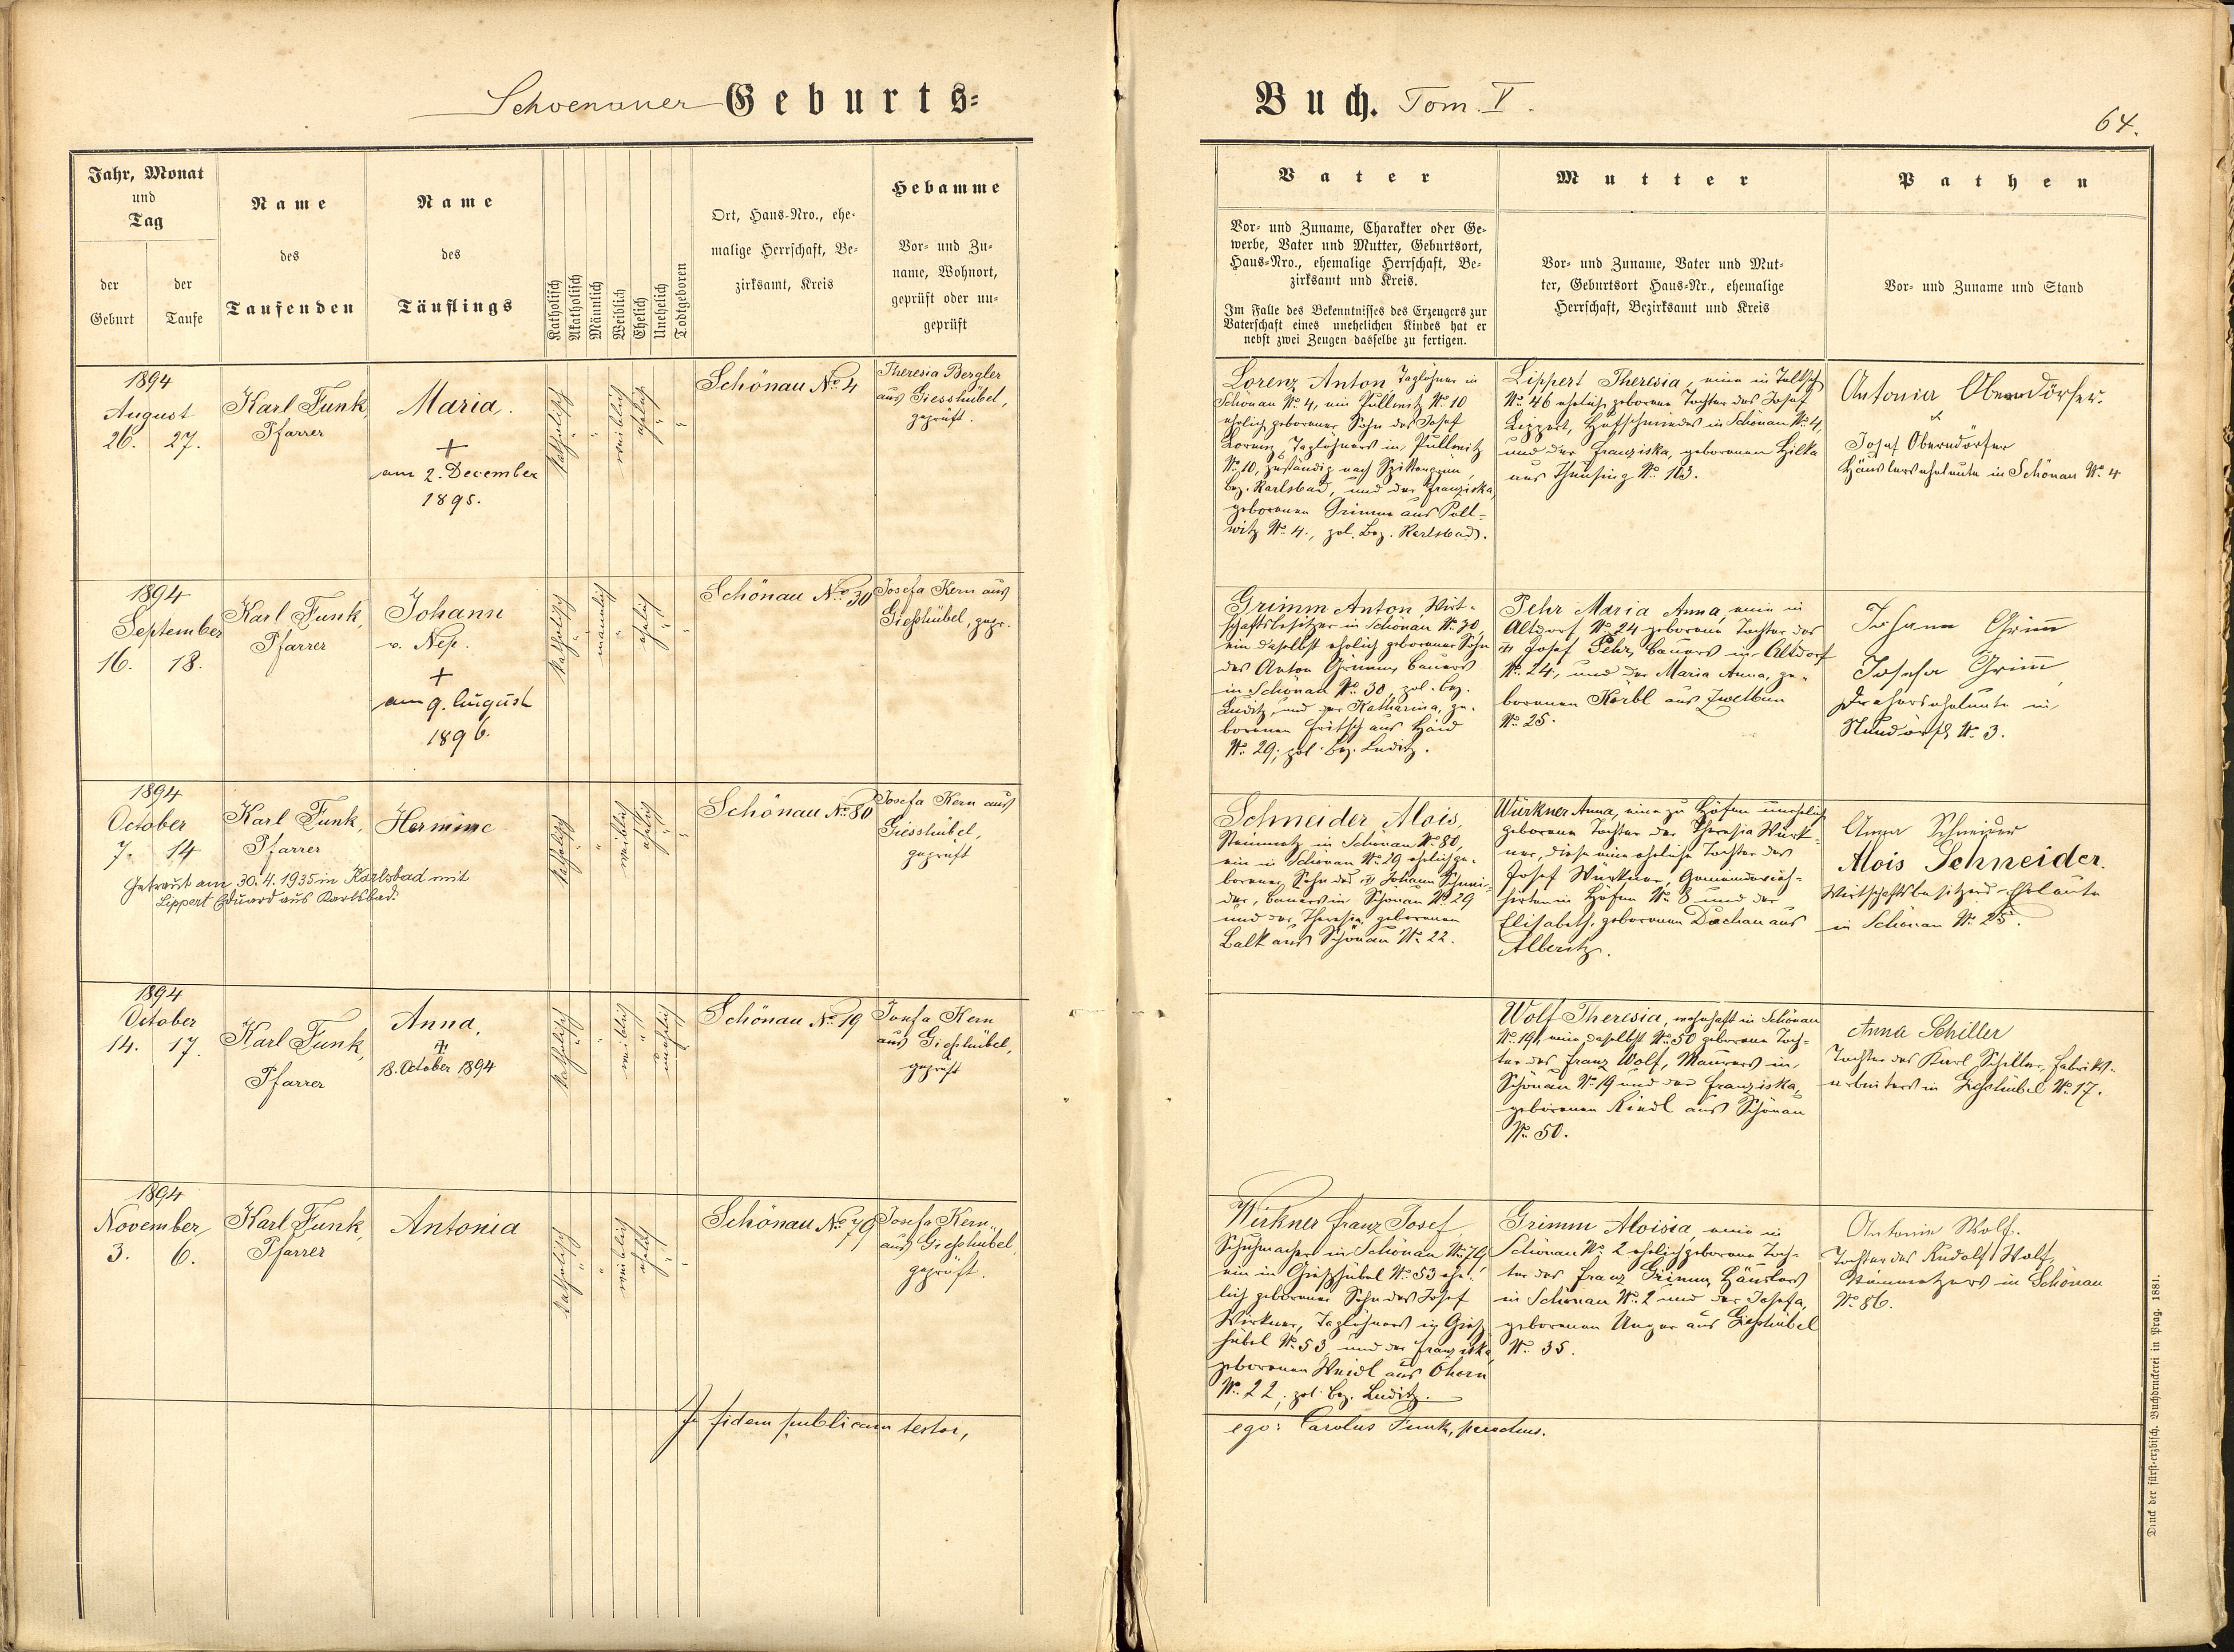 Schoenauer Geburts=
Buch. Tom. V.
64.
Jahr, Monat
und
Tag
der
Geburt
der
Taufe
Name
des
Taufenden
Name
des
Täuflings
Katholisch
Akatholisch
Männlich
Weiblich
Ehelich
Unehelich
Todtgeboren
Ort, Haus-Nro., ehe-
malige Herrschaft, Be-
zirksamt, Kreis
Hebamme
Vor- und Zu-
name, Wohnort,
geprüft oder un-
geprüft
Vater
Vor- und Zuname, Charakter oder Ge-
werbe, Vater und Mutter, Geburtsort,
Haus-Nro., ehemalige Herrschaft, Be-
zirksamt und Kreis.
Im Falle des Bekenntnisses des Erzeugers zur
Vaterschaft eines unehelichen Kindes hat er
nebst zwei Zeugen dasselbe zu fertigen.
Mutter
Vor- und Zuname, Vater und Mut-
ter, Geburtsort Haus-Nr., ehemalige
Herrschaft, Bezirksamt und Kreis
Pathen
Vor- und Zuname und Stand
1894
August
26. 27.
Karl Funk,
Pfarrer
Maria.
+
am 2. December
1895.
katholisch
"
"
weiblich
ehelich
"
"
Schönau No. 4
Theresia Bergler
aus Giesshübel,
geprüft.
Lorenz Anton Taglöhner in
Schönau No. 4, ein Pullwitz No. 10
ehelich geborener Sohn des Josef
Lorenz, Taglöhners in Pullwitz
No. 10, zuständig nach
Bez. Karlsbad, und der Franziska,
geborenen Grimm aus Pull-
witz No. 4., pol. Bez. Karlsbad.
Lippert Theresia, eine in
No. 46 ehelich geborene Tochter des Josef
Lippert, Hufschmiedes in Schönau No. 4,
und der Franziska, geborenen Hilka
aus Theusing No. 103.
Antonia Oberndörfer.
&
Josef Oberndörfer
Häuslerseheleute in Schönau No. 4
1894
September
16. 18.
Karl Funk,
Pfarrer
Johann
v. Nep.
+
am 9. August
1896.
katholisch
"
männlich
"
ehelich
"
"
Schönau No. 30
Josefa Kern aus
Gießhübel, gepr.
Grimm Anton, Wirt-
schaftsbesitzer in Schönau No. 30,
ein daselbst ehelich geborener Sohn
des Anton Grimm, Bauers
in Schönau No. 30, pol. Bez.
Luditz, und der Katharina, ge-
borenen Fritsch aus Haid
No. 29, pol. Bez. Luditz.
Pehr Maria Anna, eine in
Altdorf No. 24 geborene Tochter des
+ Josef Pehr, Bauers in Altdorf
No. 24, und der Maria Anna, ge-
borenen Körbl aus Zwetbau
No. 25.
Johann Grimm
Josefa Grimm,
in
No. 3.
1894
October
7. 14
Karl Funk,
Pfarrer
Hermine
Getraut am 30. 4. 1935 in Karlsbad mit
Lippert Eduard aus Karlsbad.
katholisch
"
"
weiblich
ehelich
"
"
Schönau No. 80
Josefa Kern aus
Giesshübel,
geprüft
Schneider Alois,
Steinmetz in Schönau No. 80,
ein in Schönau No. 29 ehelich ge-
borener Sohn des + Johann Schnei-
der, Bauers in Schönau No. 29
und der Theresia, geborenen
Balk aus Schönau No. 22.
Würkner Anna, eine zu Höfen unehelich
geborene Tochter der Theresia Würk-
ner, diese eine eheliche Tochter des
Josef Würkner, Gemeindevieh-
hirten in Höfen No. 8 und der
Elisabeth, geborenen Dachau aus
Alberitz.
Anna Schneider
Alois Schneider.
Wirtschaftsbesitzers-Eheleute
in Schönau No. 25.
1894
October
14. 17.
Karl Funk,
Pfarrer
Anna,
+
18. October 1894
katholisch
"
"
weiblich
"
unehelich
"
Schönau No. 19
Josefa Kern
aus Gießhübel,
geprüft
Wolf Theresia, wohnhaft in Schönau
No. 19, eine daselbst No. 50 geborene Toch-
ter des Franz Wolf, Maurers in
Schönau No. 19 und der Franziska,
geborenen Riedl aus Schönau
No. 50.
Anna Schiller
Tochter des Karl Schiller, Fabriks-
arbeiters in Gießhübel No. 17.
1894
November
3. 6.
Karl Funk,
Pfarrer
Antonia
katholisch
"
"
weiblich
ehelich
"
"
Schönau No. 79
Josefa Kern
aus Gießhübel,
geprüft.
Wirkner Franz Josef,
Schuhmacher in Schönau No. 79
ein in Gießhübel No. 53 ehe-
lich geborener Sohn des Josef
Wirkner, Taglöhners in Gieß-
hübel No. 53, und der Franziska,
geborenen Weidl aus Ohorn
No. 22, pol. Bez. Luditz.
Grimm Aloisia, eine in
Schönau No. 2 ehelich geborene Toch-
ter des Franz Grimm, Häuslers
in Schönau No. 2 und der Josefa,
geborenen Unger aus Gießhübel
No. 35.
Antonia Wolf.
Tochter des Rudolf Wolf,
Steinmetzers in Schönau
No. 86.
In fidem publicam testor,
ego: Carolus Funk, parochus.
Druck der fürst-erzbisch. Buchdruckerei in Prag. 1881.